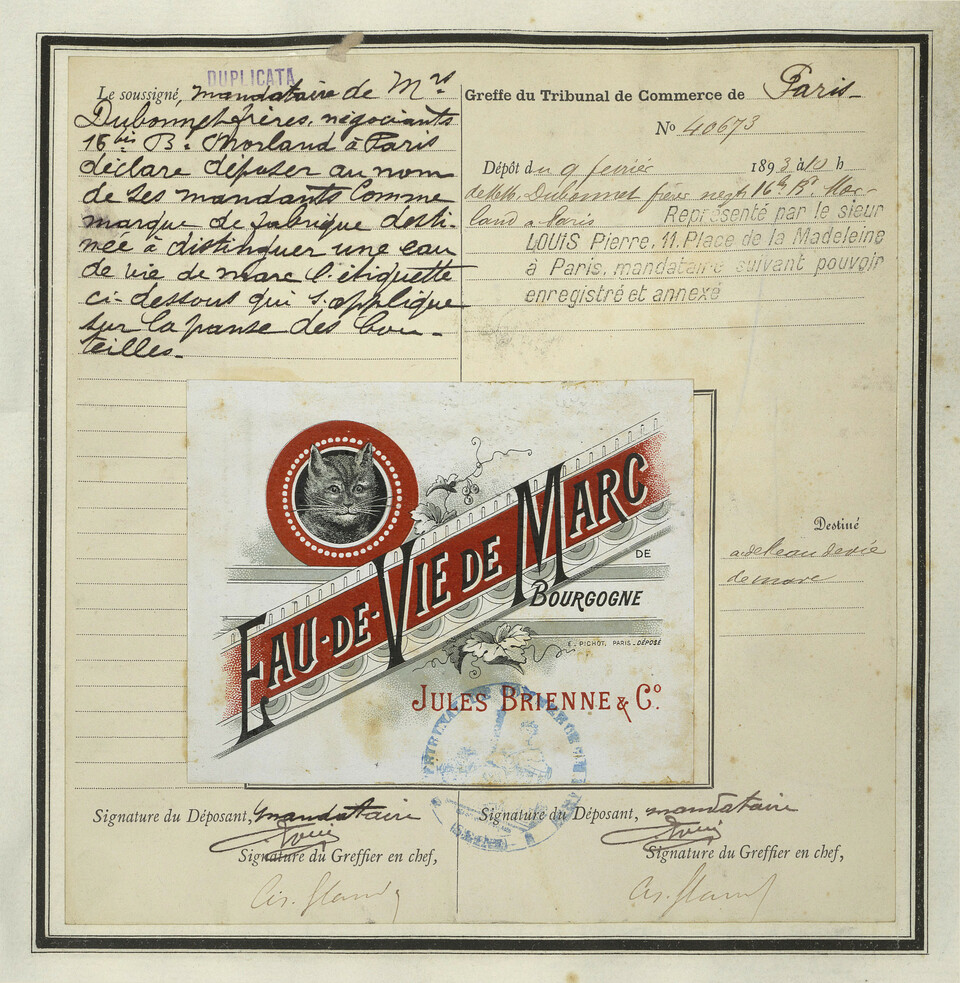 DUPLICATA
Le soussigné, mandataire de Mrs
Dubonnet frères, négociants
16 bis Bd Morland à Paris
déclare déposer au nom
de ses mandants Comme
marque de fabrique desti-
née à distinguer une eau
de vie de marc l'étiquette
ci-dessous qui s'applique
sur la panse des bou-
teilles.
Greffe du Tribunal de Commerce de Paris
No 40673
Dépôt du 9 février 1893 à 10 h
de MM. Dubonnet frères negts 16 bis Bd Mor-
land a Paris Représenté par le sieur
LOUIS Pierre, 11, Place de la Madeleine
à Paris, mandataire suivant pouvoir
enregistré et annexé
EAU-DE-VIE DE MARC
DE
BOURGOGNE
E. PICHOT, PARIS-DÉPOSÉ
JULES BRIENNE & Co.
TRIBUNAL DE COMMERCE
SEINE
Destiné
à de l'eau de vie
de marc
Signature du Déposant, mandataire
Louis
Signature du Greffier en chef,
Signature du Déposant, mandataire
Louis
Signature du Greffier en chef,